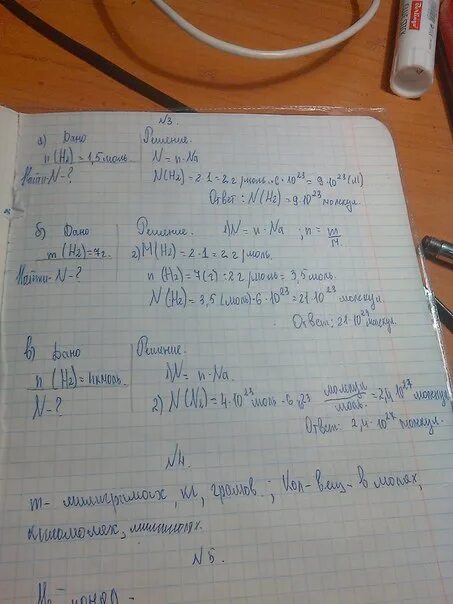 N3.
а) Дано
n(H₂) = 1,5 моль
Найти N - ?
Решение.
N = n · Na
N(H₂) = 2 · 1 = 2 г/моль · 6 · 10²³ = 9 · 10²³ (м)
Ответ: N(H₂) = 9 · 10²³ молекул.
б) Дано
m(H₂) = 7г.
Найти N - ?
Решение. 1) N = n · Na ; n = m/M
2) M(H₂) = 2 · 1 = 2 г/моль.
n(H₂) = 7(г) : 2 г/моль = 3,5 моль.
N(H₂) = 3,5 (моль) · 6 · 10²³ = 21 · 10²³ молекул.
Ответ: 21 · 10²³ молекул.
в) Дано
n(H₂) = 4кмоль.
N - ?
Решение.
1) N = n · Na.
2) N(N₂) = 4 · 10²³ моль · 6 ²³ молекул/моль = 2,4 · 10²⁷ молекул
Ответ: 2,4 · 10²⁷ молекул.
N4.
m - милиграмах, кг, грамов; Кол-вещ - в молях,
киломолях, милимолях.
N5.